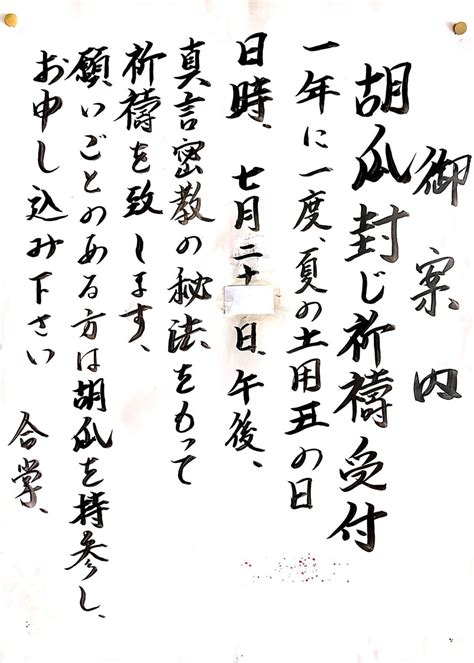 御案内
胡瓜封じ祈禱受付
一年に一度、夏の土用丑の日
日時、七月二十日、午後、
真言密教の秘法をもって
祈禱を致します、
願いごとのある方は胡瓜を持参し、
お申し込み下さい
合掌、